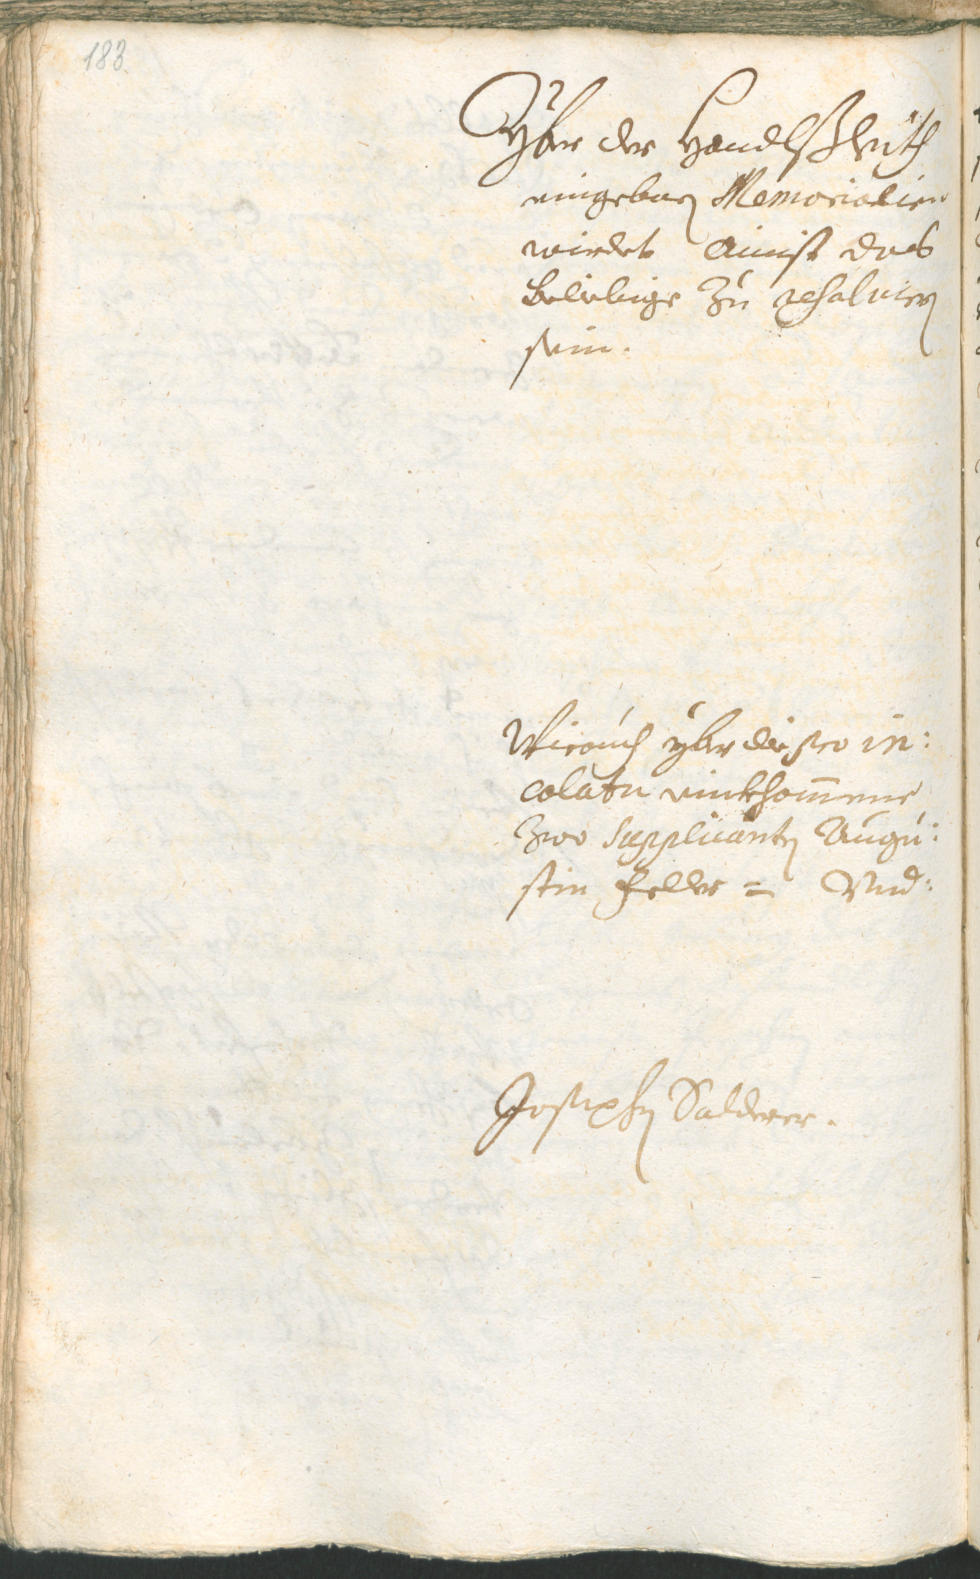 183
Yber der Handlßleüth
eingeben Memorialien
wirdet Ainist das
beliebige zu resolvirn
sein.
Wieauch yber die pro in:
colatu einkhom̄ene
zwo Supplicanten Augu:
stin Feller = Vnd:
Josephen Salderer.